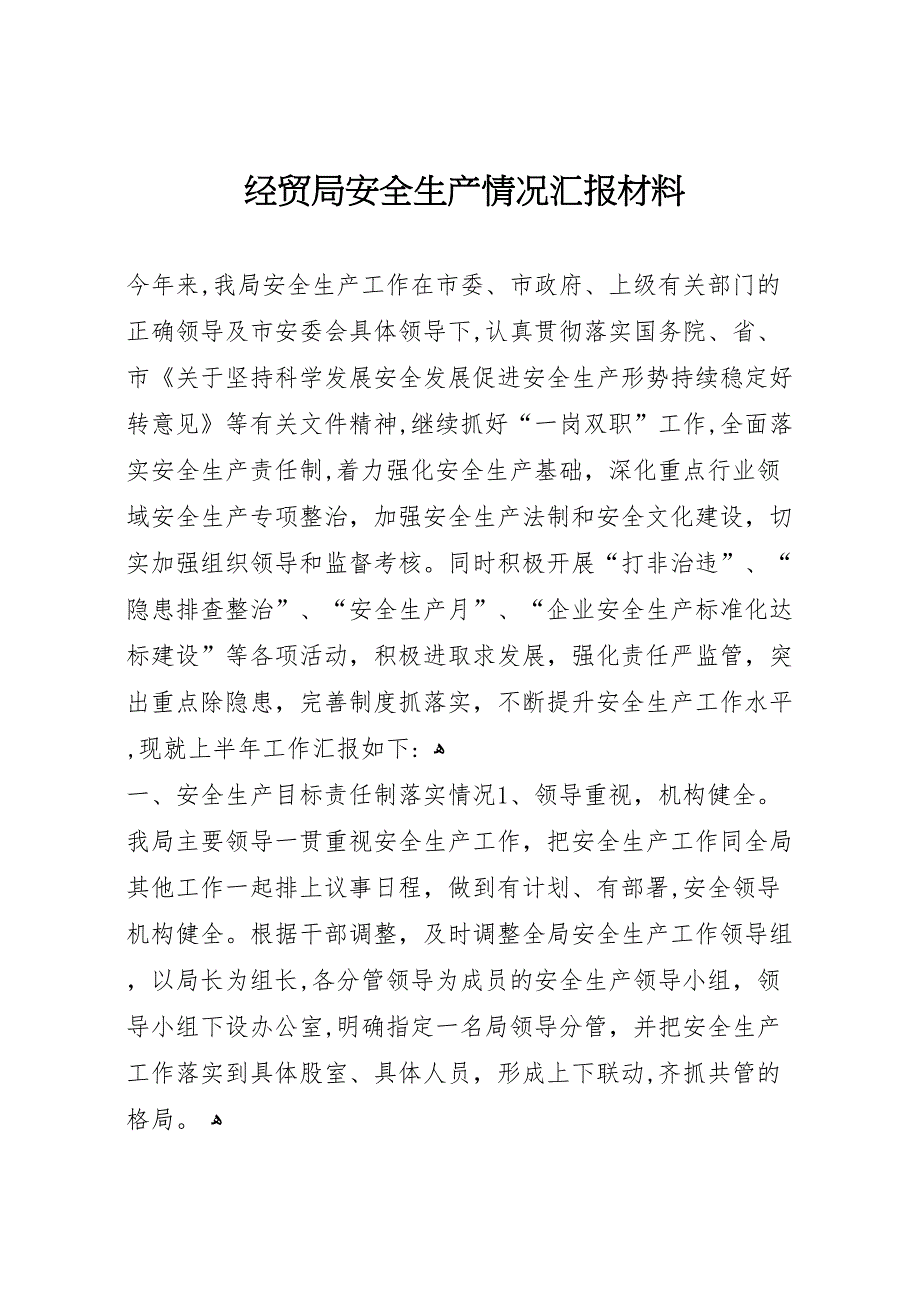 经贸局安全生产情况汇报材料
今年来,我局安全生产工作在市委、市政府、上级有关部门的
正确领导及市安委会具体领导下,认真贯彻落实国务院、省、
市《关于坚持科学发展安全发展促进安全生产形势持续稳定好
转意见》等有关文件精神,继续抓好“一岗双职”工作,全面落
实安全生产责任制,着力强化安全生产基础，深化重点行业领
域安全生产专项整治，加强安全生产法制和安全文化建设，切
实加强组织领导和监督考核。同时积极开展“打非治违”、“
隐患排查整治”、“安全生产月”、“企业安全生产标准化达
标建设”等各项活动，积极进取求发展，强化责任严监管，突
出重点除隐患，完善制度抓落实，不断提升安全生产工作水平
,现就上半年工作汇报如下: ﻫ
一、安全生产目标责任制落实情况1、领导重视，机构健全。
我局主要领导一贯重视安全生产工作，把安全生产工作同全局
其他工作一起排上议事日程，做到有计划、有部署,安全领导
机构健全。根据干部调整，及时调整全局安全生产工作领导组
，以局长为组长,各分管领导为成员的安全生产领导小组，领
导小组下设办公室,明确指定一名局领导分管，并把安全生产
工作落实到具体股室、具体人员，形成上下联动,齐抓共管的
格局。 ﻫ